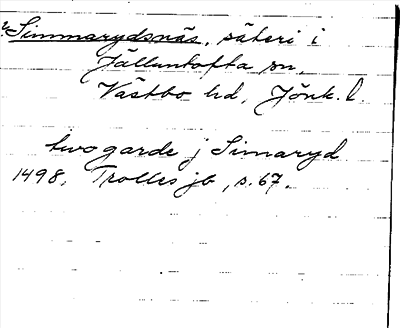 ? Simmarydsnäs, säteri i
Jälluntofta sn,
Västbo hd, Jönk. l.
two garde j Simaryd
1498, Trolles jb, s. 67.